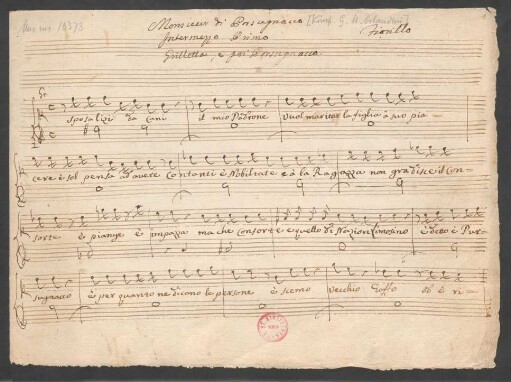 Mus. ms. 18373
Monsieur di Porsugnacco [Komp. G. M. Orlandini]
Intermezzo Primo Fiorillo
Grilletta, e poi Porsugnacco
Sposalizi da cani il mio Padrone Vuol maritar la figlia à suo pia-
cere è sol pensa ad avere Contanti è Nobiltate e à la Ragazza non gradisce il Con-
sorte è piange è impazza ma che Consorte e quello di Nazion Limosino è detto è Pur-
sugnacco è per quanto ne dicono le persone è scemo Vecchio Goffo ed è ri-